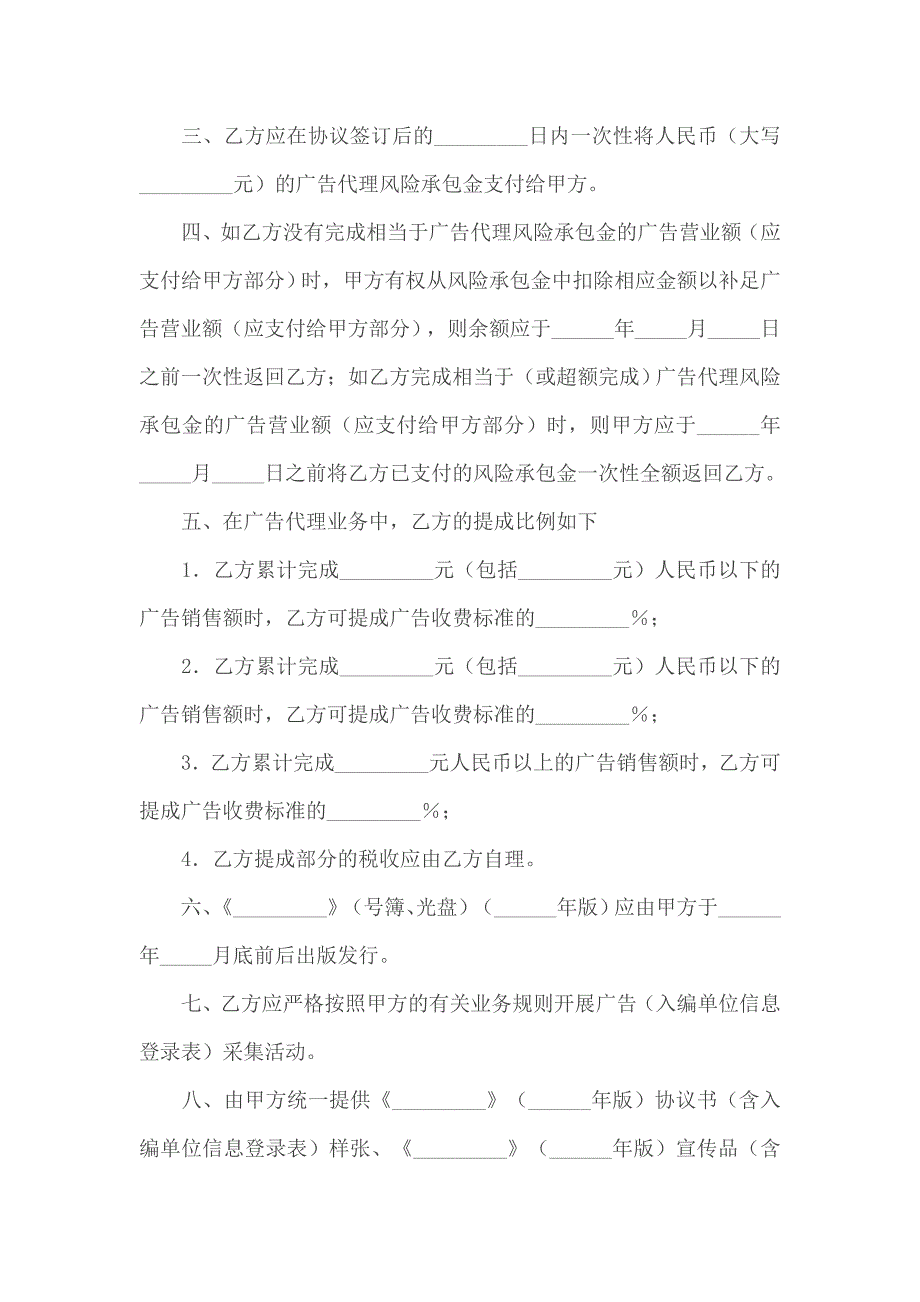 三、乙方应在协议签订后的_________日内一次性将人民币（大写
_________元）的广告代理风险承包金支付给甲方。
四、如乙方没有完成相当于广告代理风险承包金的广告营业额（应
支付给甲方部分）时，甲方有权从风险承包金中扣除相应金额以补足广
告营业额（应支付给甲方部分），则余额应于______年_____月_____日
之前一次性返回乙方；如乙方完成相当于（或超额完成）广告代理风险
承包金的广告营业额（应支付给甲方部分）时，则甲方应于______年
_____月_____日之前将乙方已支付的风险承包金一次性全额返回乙方。
五、在广告代理业务中，乙方的提成比例如下
1．乙方累计完成_________元（包括_________元）人民币以下的
广告销售额时，乙方可提成广告收费标准的_________％；
2．乙方累计完成_________元（包括_________元）人民币以下的
广告销售额时，乙方可提成广告收费标准的_________％；
3．乙方累计完成_________元人民币以上的广告销售额时，乙方可
提成广告收费标准的_________％；
4．乙方提成部分的税收应由乙方自理。
六、《_________》（号簿、光盘）（______年版）应由甲方于______
年_____月底前后出版发行。
七、乙方应严格按照甲方的有关业务规则开展广告（入编单位信息
登录表）采集活动。
八、由甲方统一提供《_________》（______年版）协议书（含入
编单位信息登录表）样张、《_________》（______年版）宣传品（含